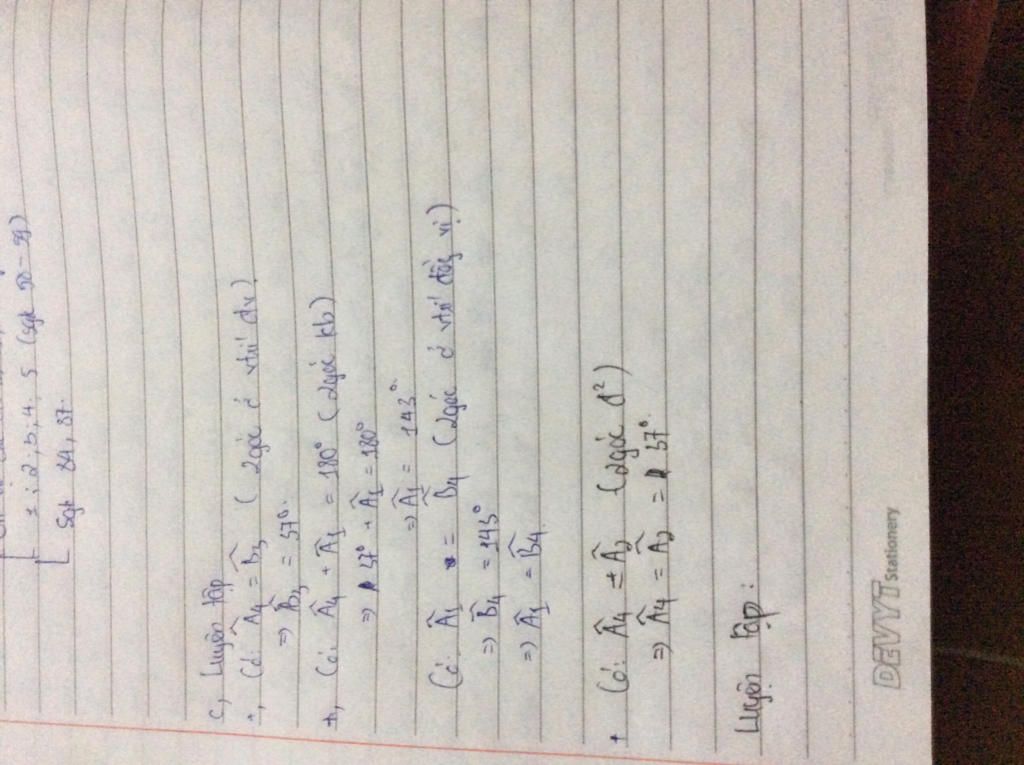 1; 2; 3; 4; 5 (Sgk
Sgk 84, 87.
c, Luyện tập
+, Có: Â4 = B̂3 (2 góc ở vtrí
=> B̂3 = 37°.
+, Có: Â4 + Â1 = 180° (2 góc kb)
=> 37° + Â1 = 180°
=> Â1 = 143°.
Có: Â1 = B̂4 (2 góc ở vtrí đồng vị)
=> B̂4 = 143°
=> Â1 = B̂4.
+ Có: Â4 = Â2 (2 góc đ²)
=> Â4 = Â2 = 37°.
Luyện tập:
DEVYT Stationery